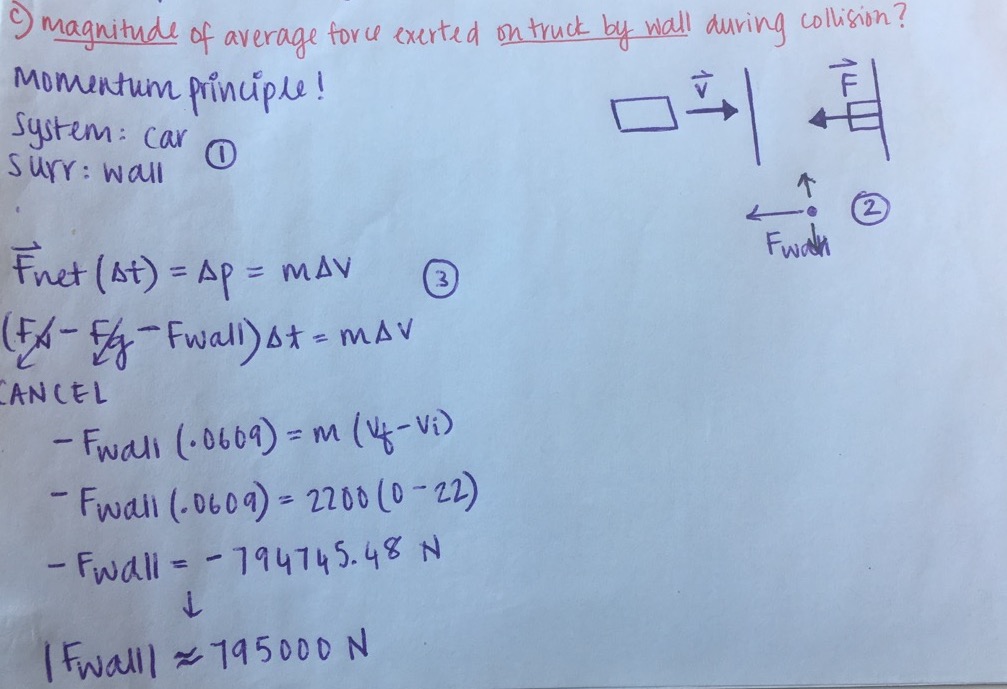 c) magnitude of average force exerted on truck by wall during collision?
Momentum principle!
System: car
①
Surr: wall
v
F
②
Fwall
Fnet (Δt) = Δp = mΔV
③
(FN - Fg - Fwall) Δt = mΔV
CANCEL
- Fwall (.0609) = m (Vf - Vi)
- Fwall (.0609) = 2200 (0 - 22)
- Fwall = - 794745.48 N
↓
|Fwall| ≈ 795000 N